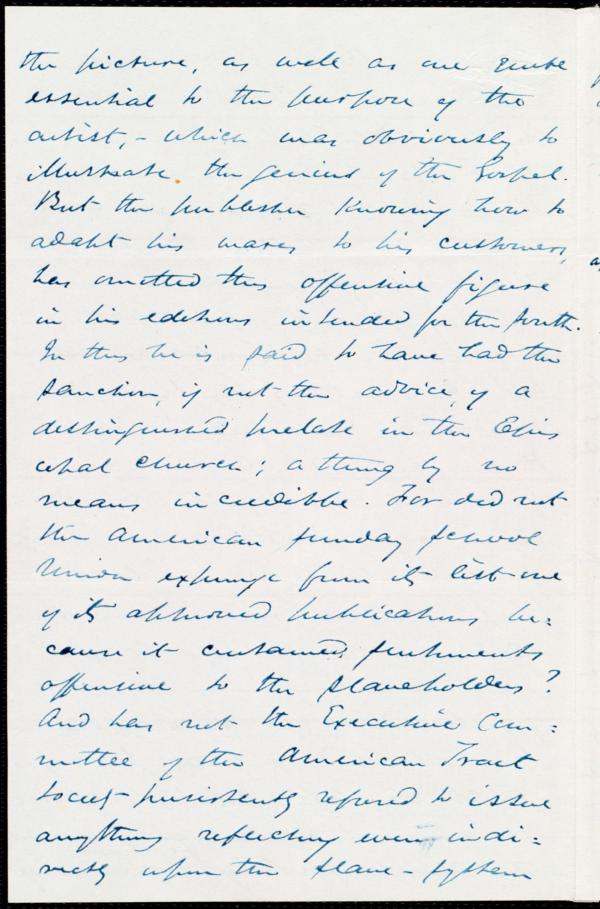 the picture, as well as one quite
essential to the purpose of the
artist, - which was obviously to
illustrate the genius of the Gospel.
But the publisher knowing how to
adapt his wares to his customers,
has omitted this offensive figure
in his editions intended for the South.
In this he is said to have had the
sanction, if not the advice, of a
distinguished prelate in the Epis
copal church; a thing by no
means incredible. For did not
the American Sunday School
Union expunge from its list one
of its approved publications be:
cause it contained sentiments
offensive to the slaveholders?
And has not the Executive Com:
mittee of the American Tract
Society persistently refused to issue
anything reflecting even indi:
rectly upon the slave-system